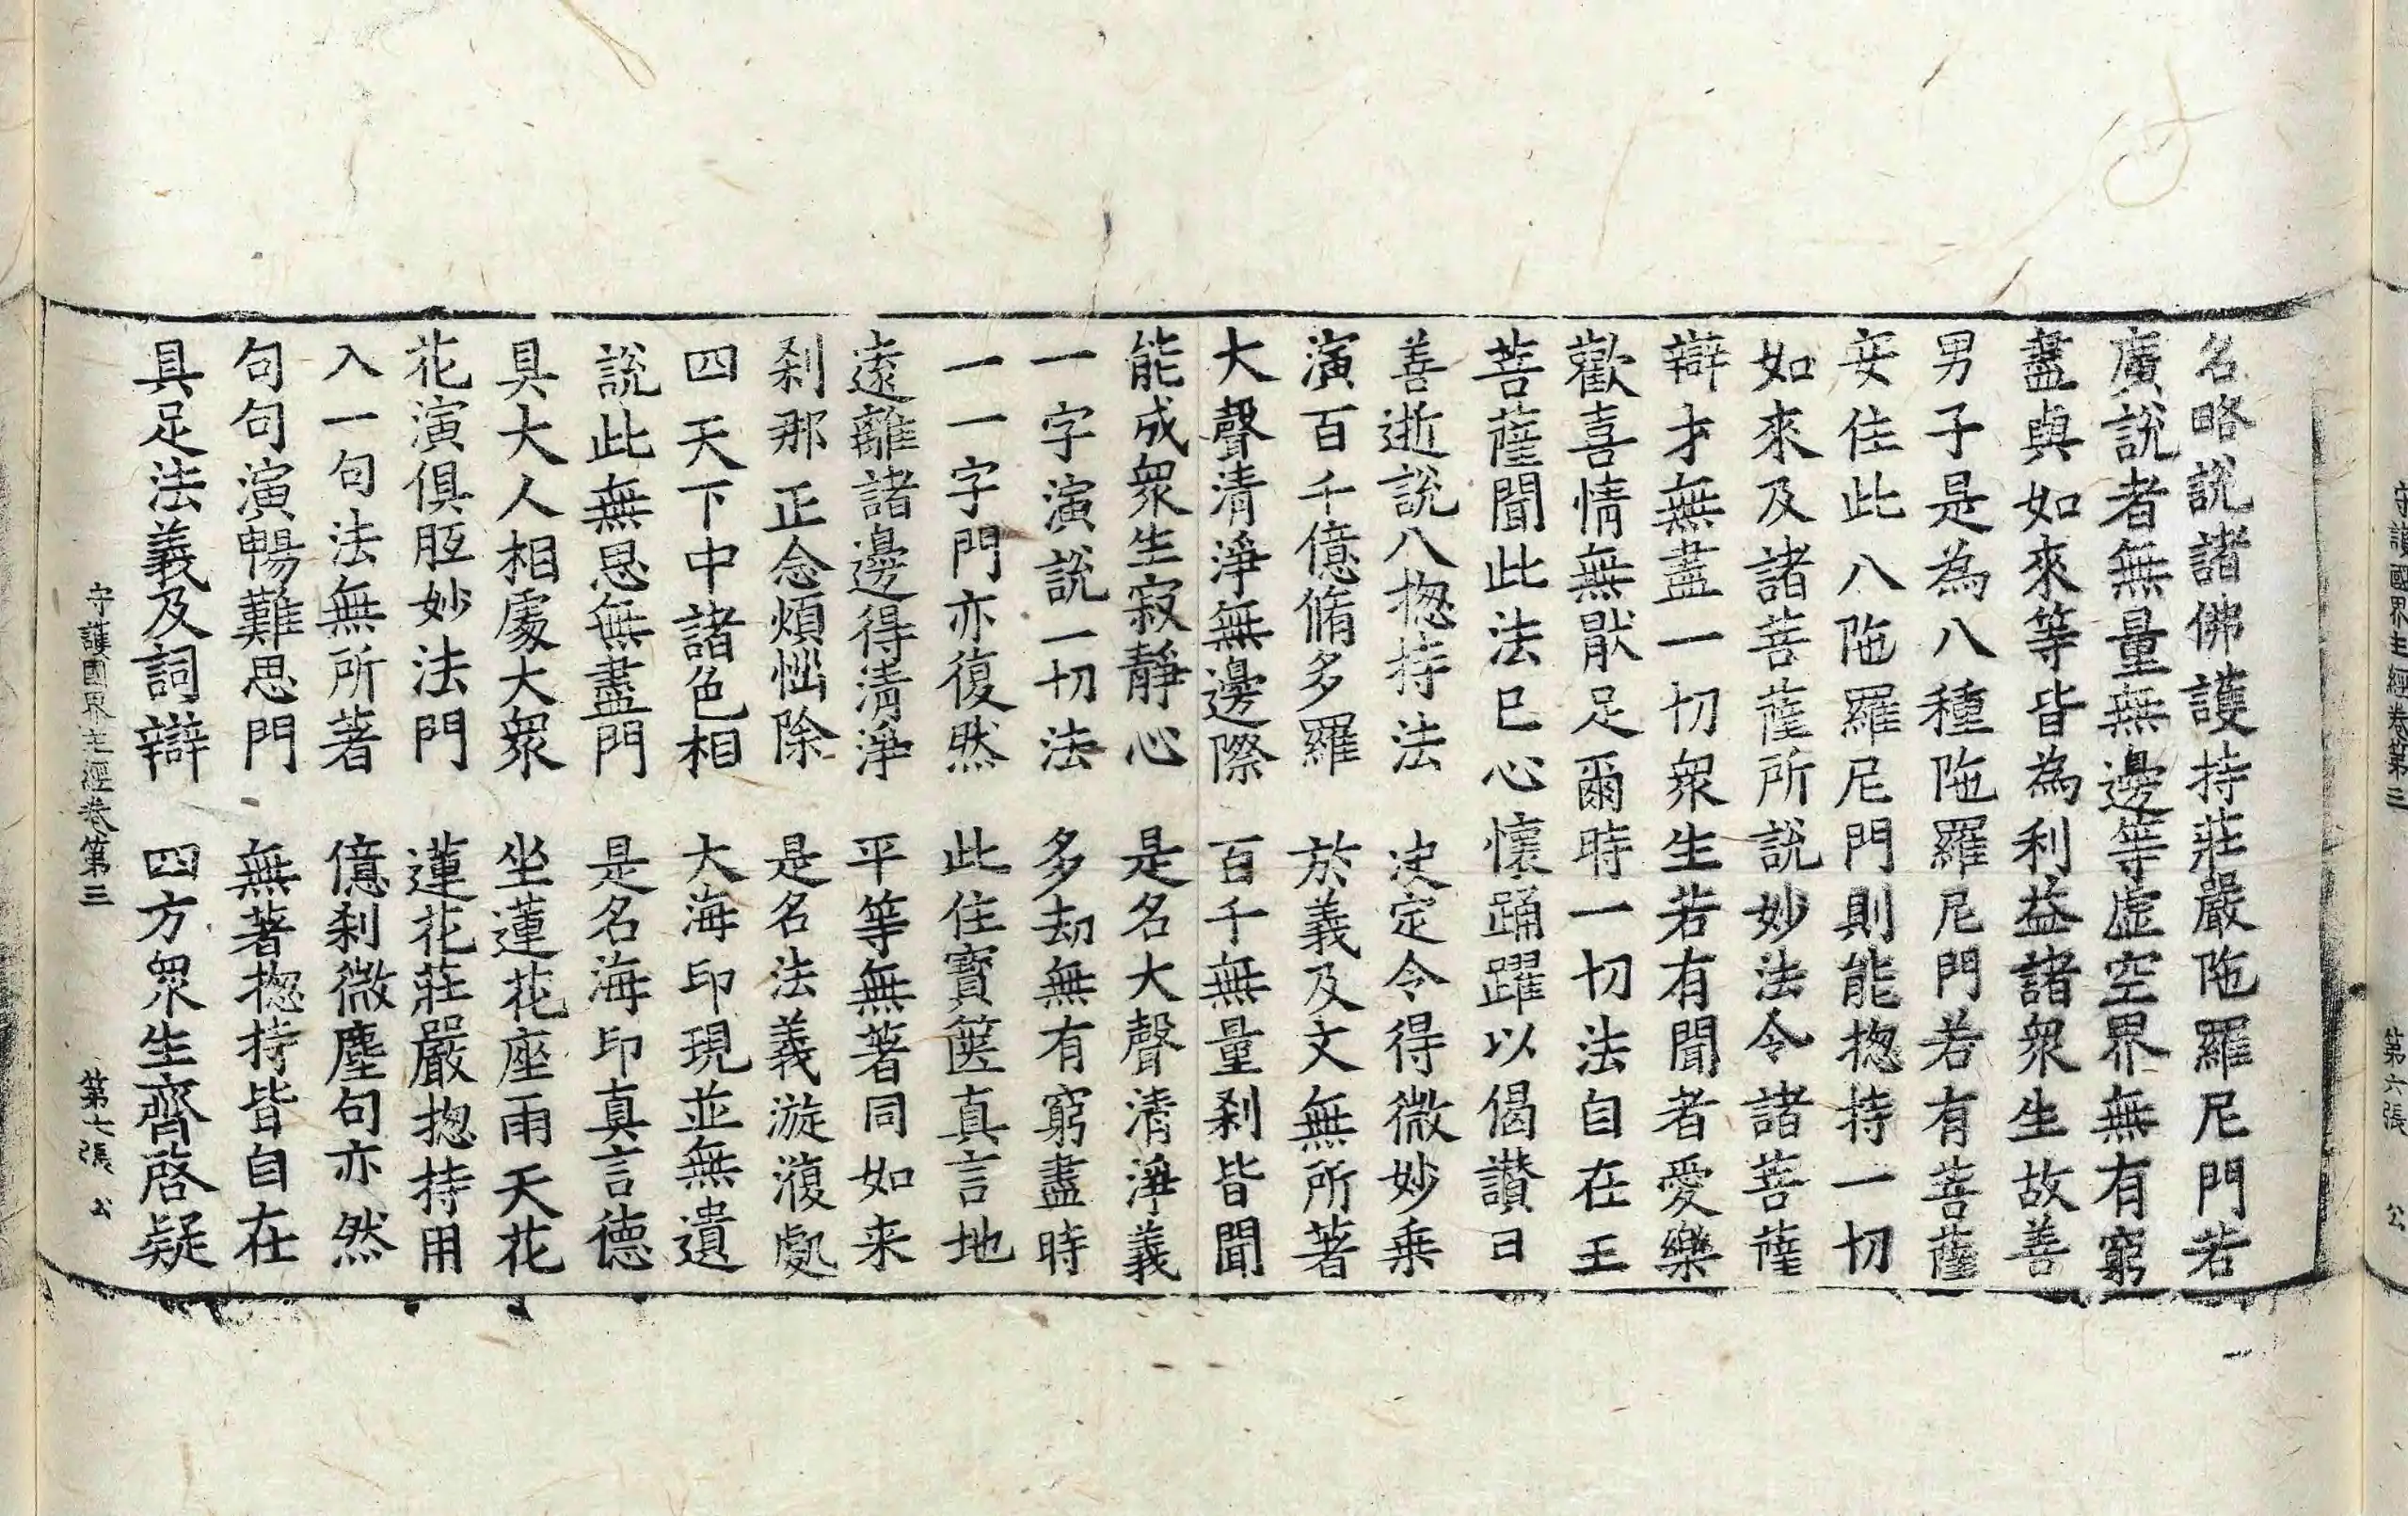 守護國界主經卷第三 第六張 公
名略說諸佛護持莊嚴陁羅尼門若
廣說者無量無邊等虛空界無有窮
盡與如來等皆為利益諸衆生故善
男子是為八種陁羅尼門若有菩薩
安住此八陁羅尼門則能揔持一切
如來及諸菩薩所說妙法令諸菩薩
辯才無盡一切衆生若有聞者愛樂
歡喜情無猒足爾時一切法自在王
菩薩聞此法已心懷踊躍以偈讚曰
善逝說八揔持法 決定令得微妙乗
演百千億脩多羅 於義及文無所著
大聲清淨無邊際 百千無量刹皆聞
能成衆生寂靜心 是名大聲清淨義
一字演說一切法 多劫無有窮盡時
一一字門亦復然 此住寶篋真言地
遠離諸邊得清淨 平等無著同如来
刹那正念煩惱除 是名法義漩澓處
四天下中諸色相 大海印現並無遺
說此無㤙無盡門 是名海印真言德
具大人相處大衆 坐蓮花座雨天花
花演俱胝妙法門 蓮花莊嚴揔持用
入一句法無所著 億刹微塵句亦然
句句演暢難思門 無著揔持皆自在
具足法義及詞辯 四方衆生齊啓疑
守護國界主經卷第三 第七張 公